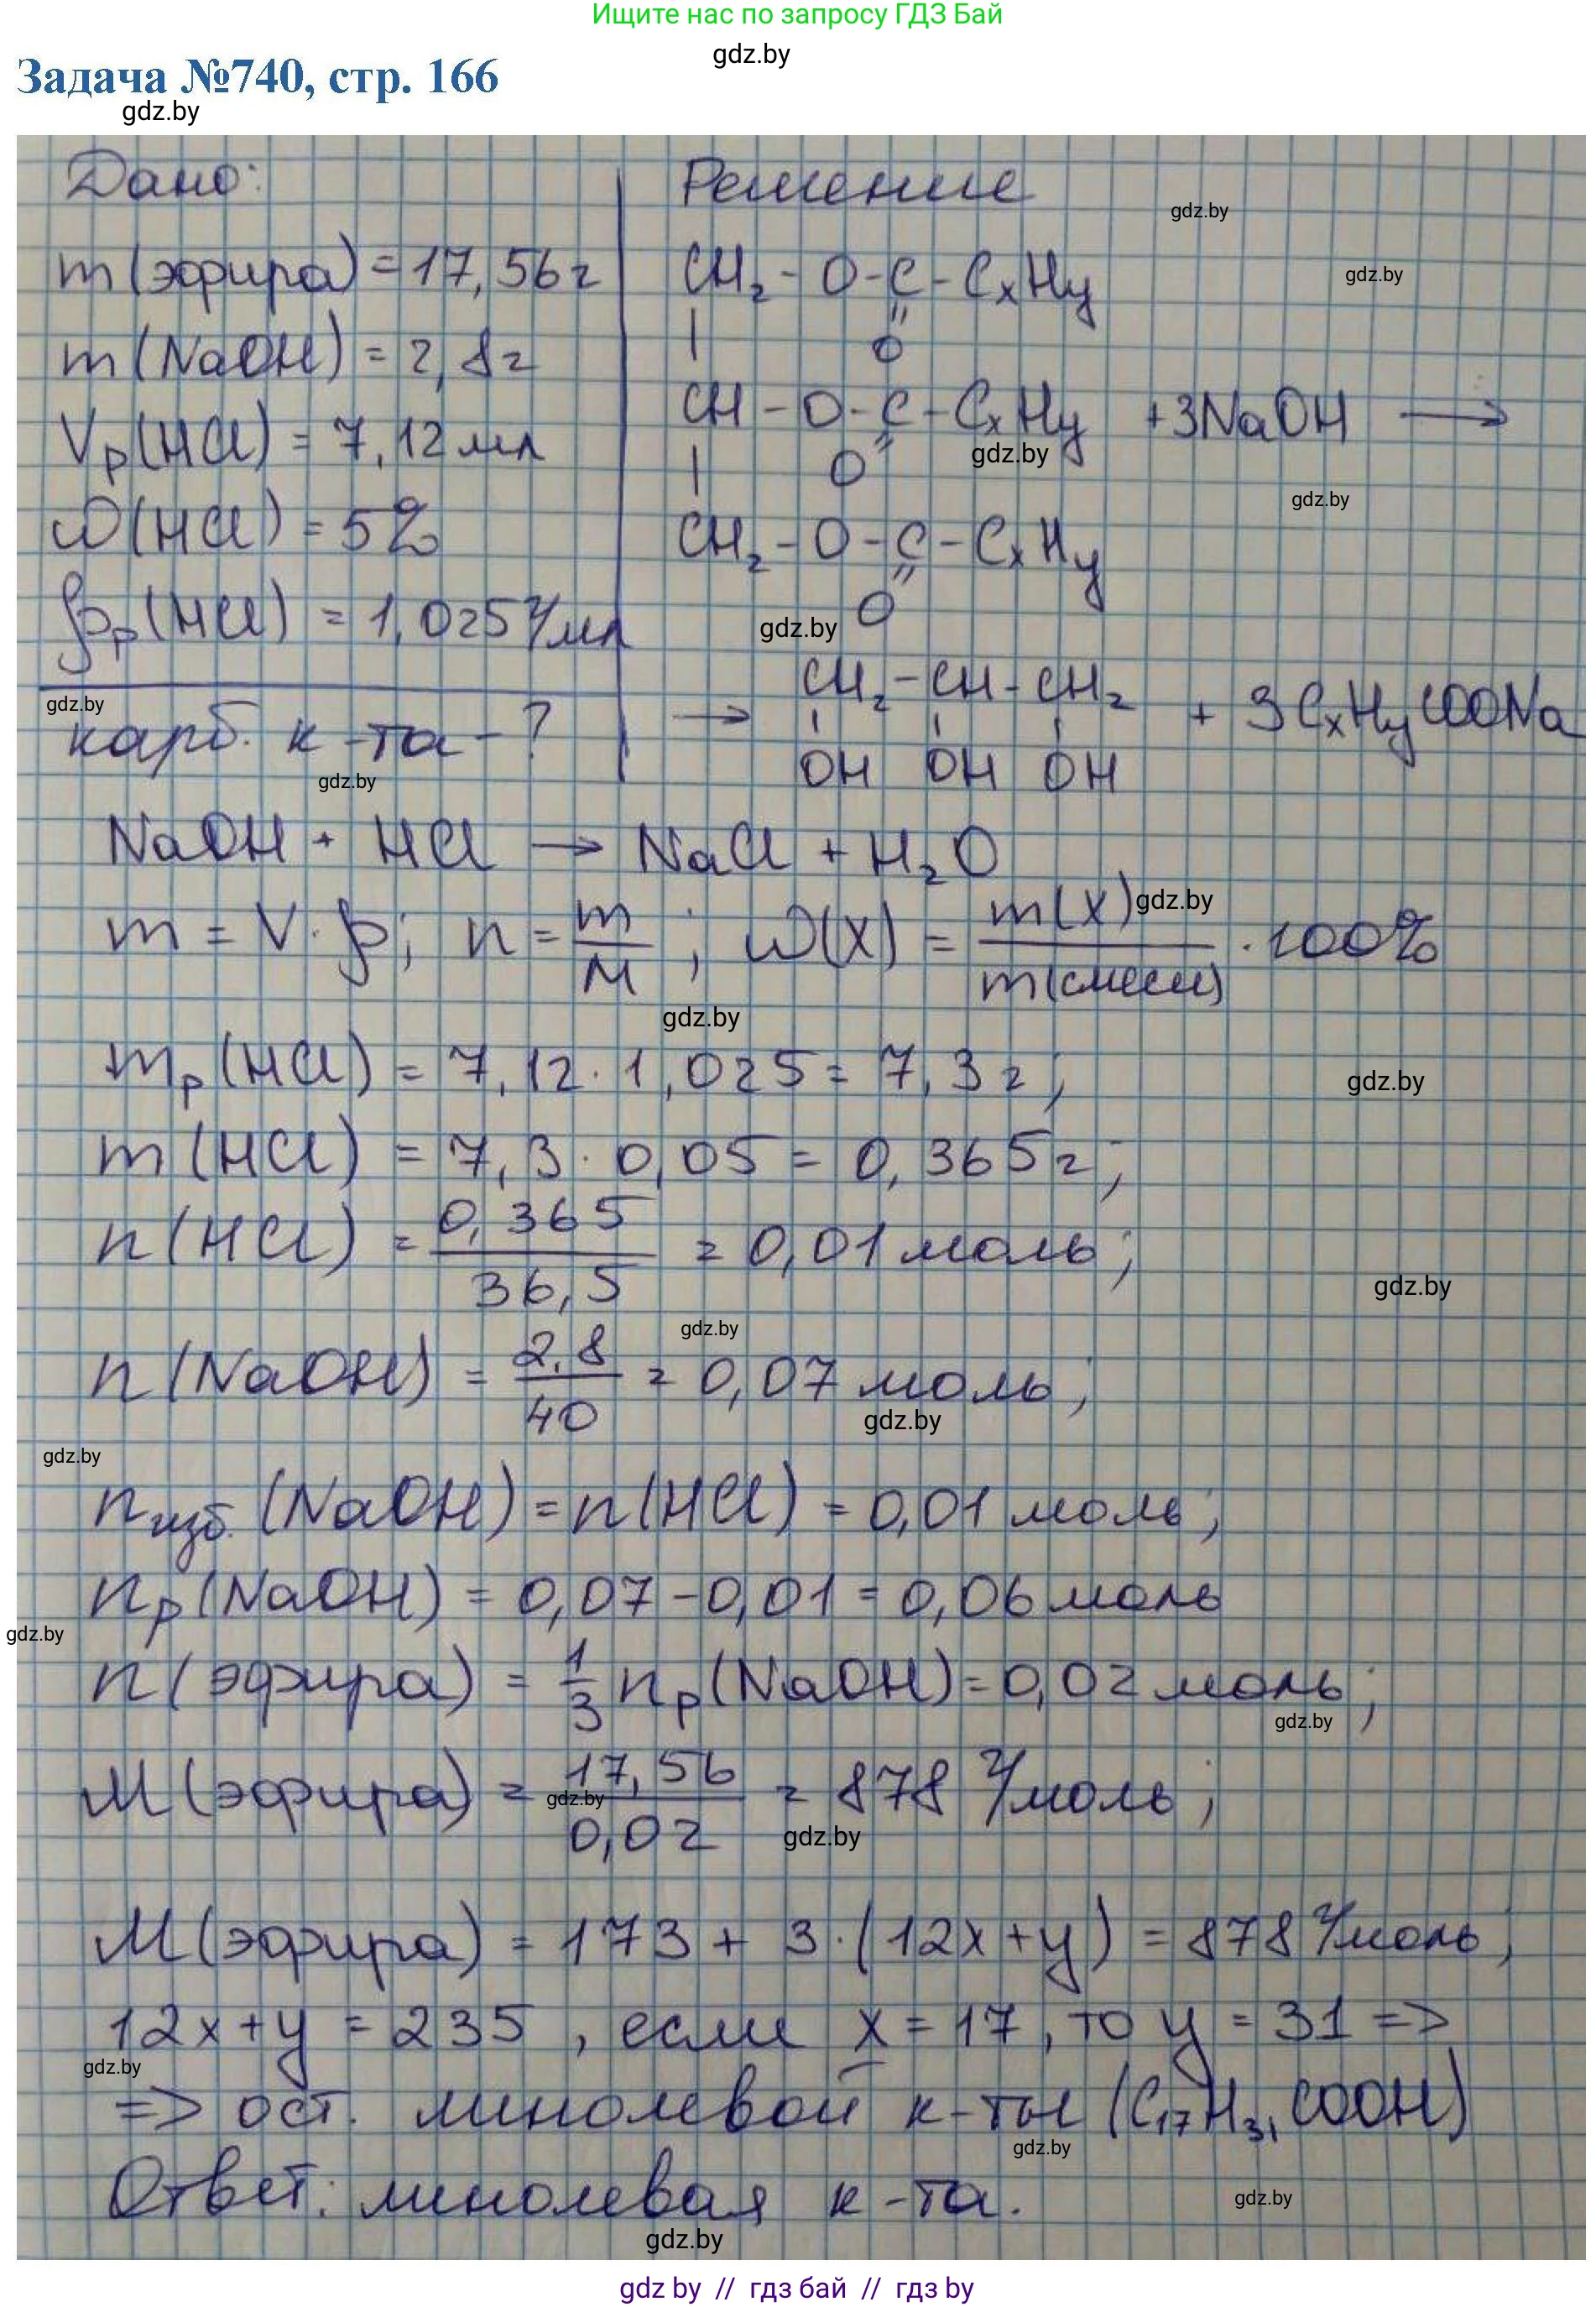 Ищите нас по запросу ГДЗ Бай
gdz.by
Задача №740, стр. 166
gdz.by
Дано:
m(эфира) = 17,56 г
m(NaOH) = 2,8 г
Vр(HCl) = 7,12 мл
ω(HCl) = 5%
ρр(HCl) = 1,025 г/мл
gdz.by
карб. к-та - ?
gdz.by
Решение
gdz.by
CH₂ - O - C - CₓHy
gdz.by
| || O
CH - O - C - CₓHy + 3NaOH →
gdz.by
| O ||
gdz.by
CH₂ - O - C - CₓHy
|| O
gdz.by
→ CH₂ - CH - CH₂ + 3CₓHyCOONa
| | |
OH OH OH
NaOH + HCl → NaCl + H₂O
m = V · ρ; n = m/M ; ω(X) = m(X)/m(смеси) · 100%
gdz.by
gdz.by
mр(HCl) = 7,12 · 1,025 = 7,3 г;
gdz.by
m(HCl) = 7,3 · 0,05 = 0,365 г;
n(HCl) = 0,365/36,5 = 0,01 моль;
gdz.by
gdz.by
n(NaOH) = 2,8/40 = 0,07 моль;
gdz.by
gdz.by
nизб.(NaOH) = n(HCl) = 0,01 моль;
nр(NaOH) = 0,07 - 0,01 = 0,06 моль
gdz.by
n(эфира) = 1/3 nр(NaOH) = 0,02 моль;
gdz.by
M(эфира) = 17,56/0,02 = 878 г/моль;
gdz.by
gdz.by
M(эфира) = 173 + 3·(12x + y) = 878 г/моль;
12x + y = 235 , если x = 17, то y = 31 =>
gdz.by
=> ост. линолевой к-ты (C₁₇H₃₁COOH)
gdz.by
Ответ: линолевая к-та.
gdz.by
gdz.by
gdz by // гдз бай // гдз by